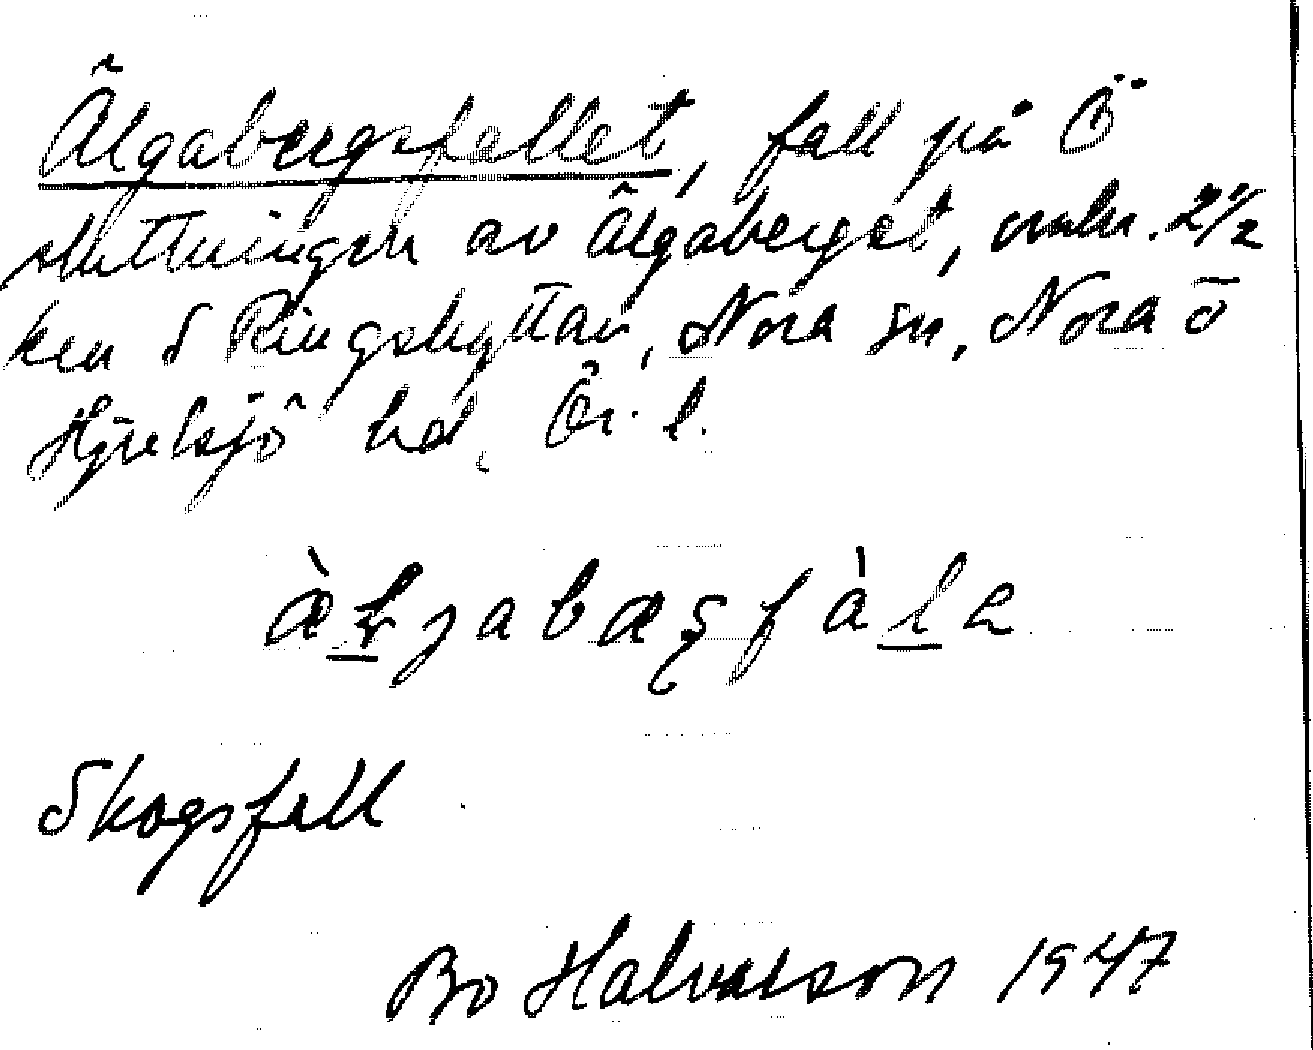 Älgabergsfallet, fall på Ö
sluttningen av Älgaberget, omkr. 2 1/2
km S Ringshyttan, Nora sn, Nora o
Hjulsjö hd, Ör. l.
Skogsfall
Bo Halvarson 1947